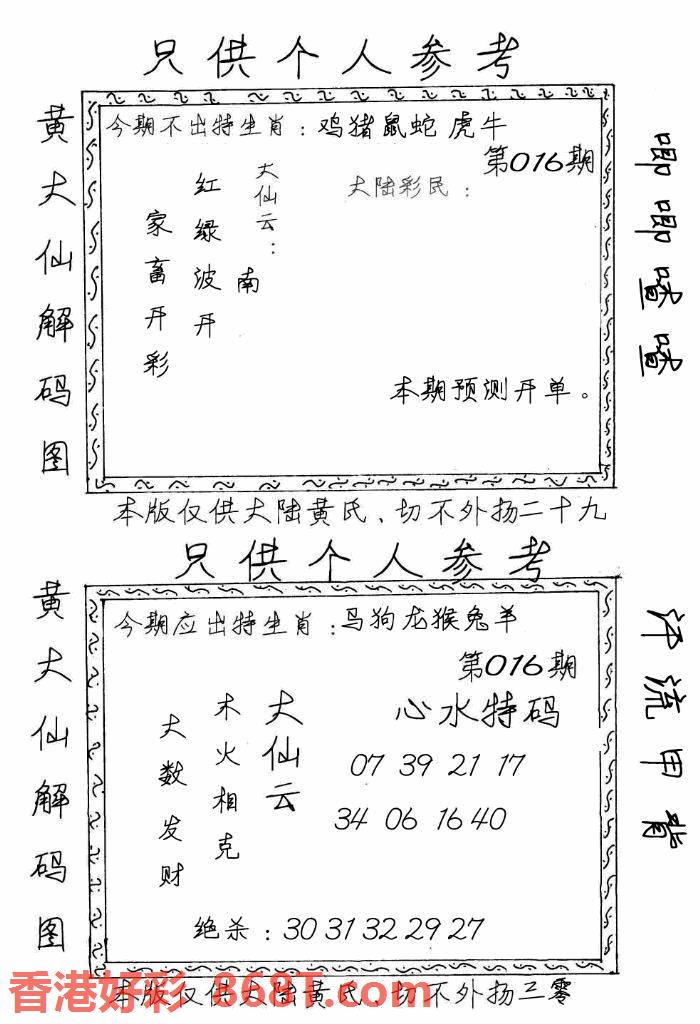 只供个人参考
黄大仙解码图
今期不出特生肖：鸡猪鼠蛇虎牛
第016期
大陆彩民：
大仙云：
南
红绿波开
家畜开彩
本期预测开单。
唧唧喳喳
本版仅供大陆黄氏、切不外扬二十九
只供个人参考
黄大仙解码图
今期应出特生肖：马狗龙猴兔羊
第016期
心水特码
大仙云
木火相克
大数发财
07 39 21 17
34 06 16 40
绝杀：30 31 32 29 27
汗流甲背
本版仅供大陆黄氏、切不外扬三零
香港好彩 868T.com